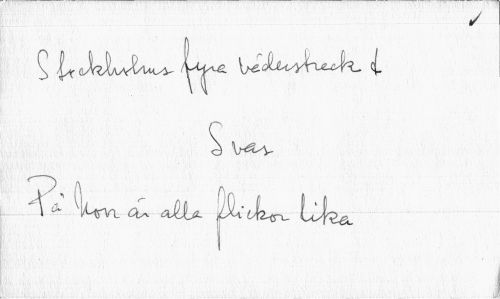 Stockholms fyra väderstreck &
Svar
På Norr är alla flickor lika